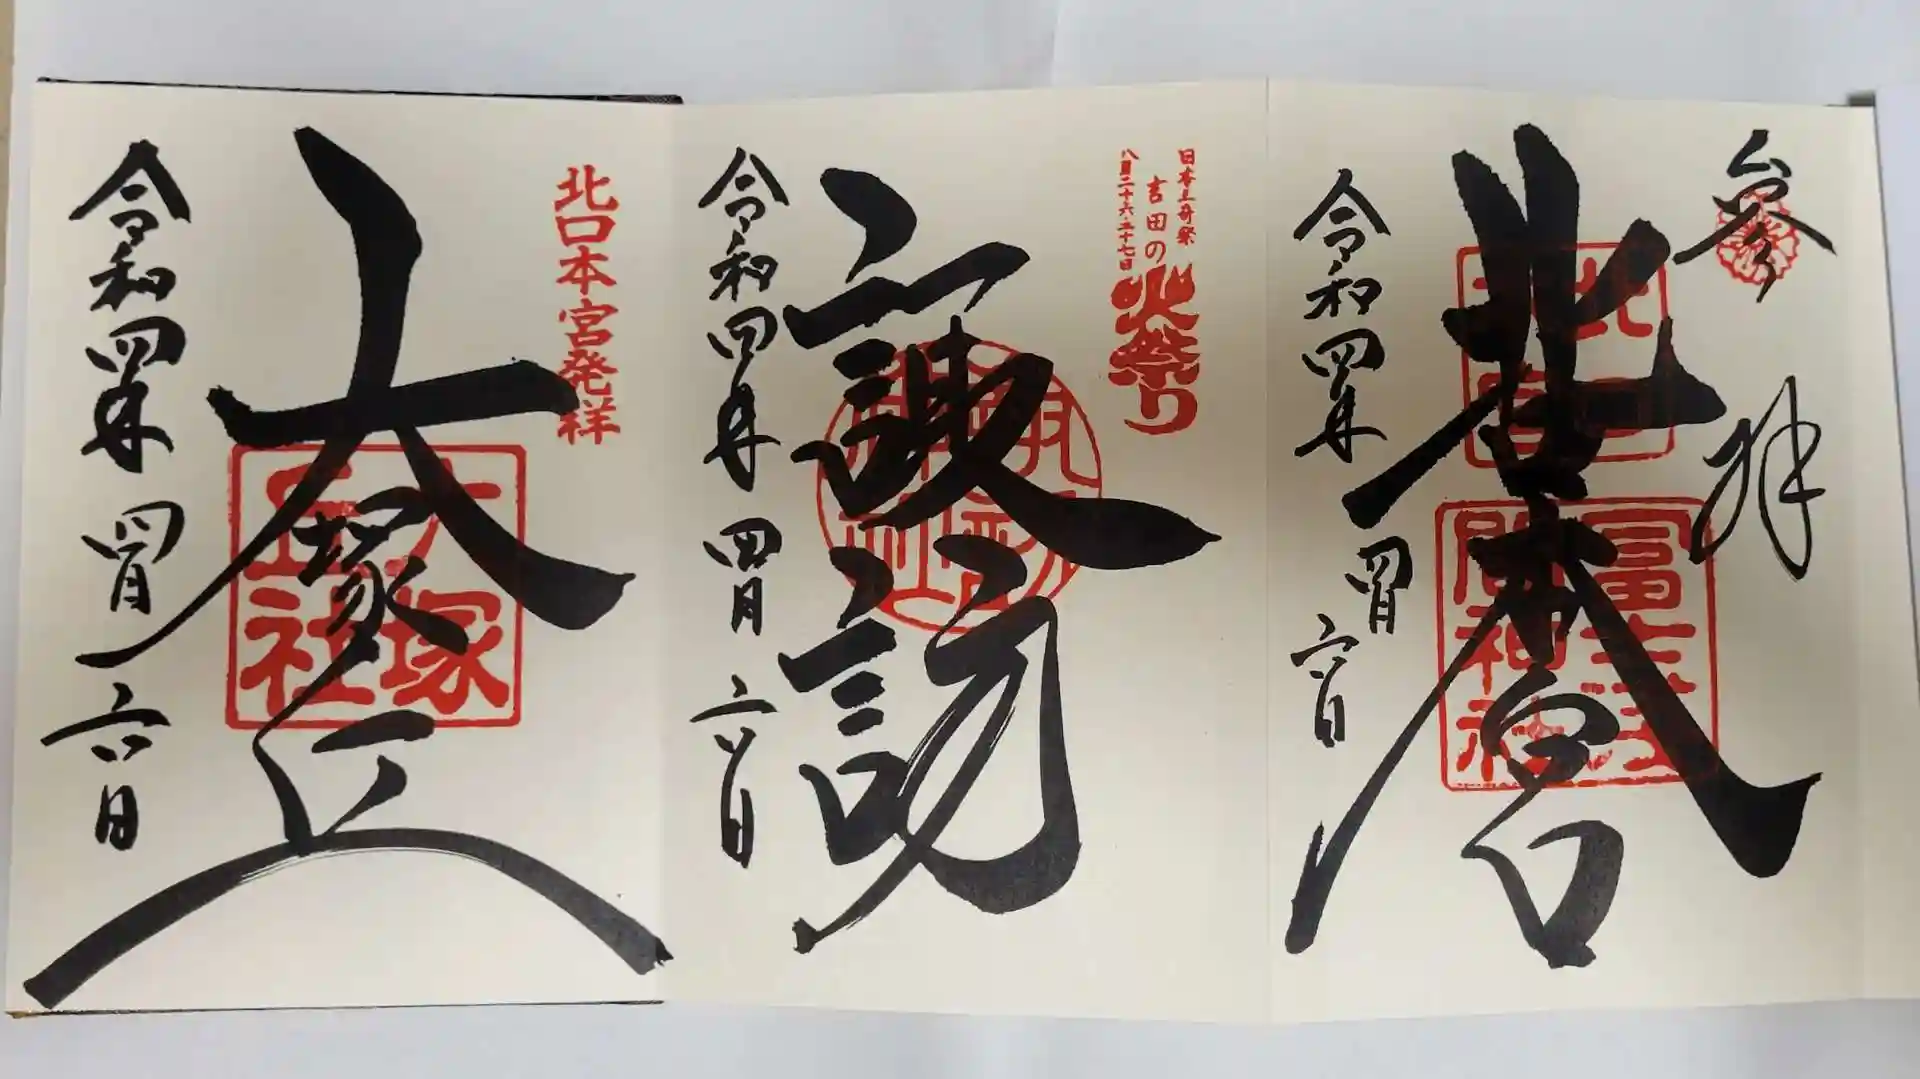 参拝
北口本宮
北口本宮
冨士浅間神社
令和四年 四月 六日
日本三奇祭
吉田の火祭り
八月二十六・二十七日
諏訪
諏訪神社
令和四年 四月 六日
北口本宮発祥
大塚丘
大塚丘社
令和四年 四月 六日